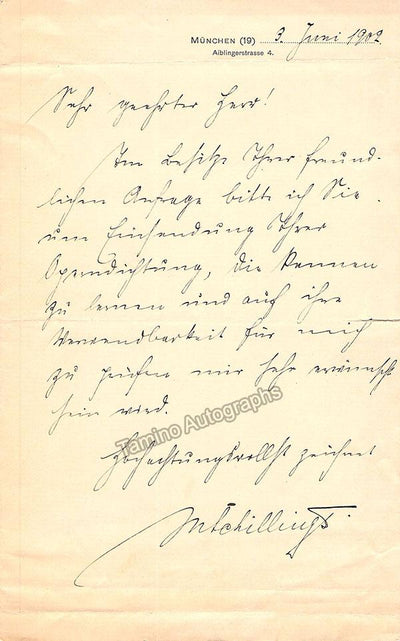 MÜNCHEN (19) 3. Juni 1902
Aiblingerstrasse 4.
Sehr geehrter Herr!
Im Besitze Ihrer freund-
lichen Anfrage bitte ich Sie
um Einsendung Ihrer
Operndichtung, die kennen
zu lernen und auf ihre
Verwendbarkeit für mich
zu prüfen mir sehr erwünscht
sein wird.
Hochachtungsvollst zeichnet
MSchillings
Tamino Autographs